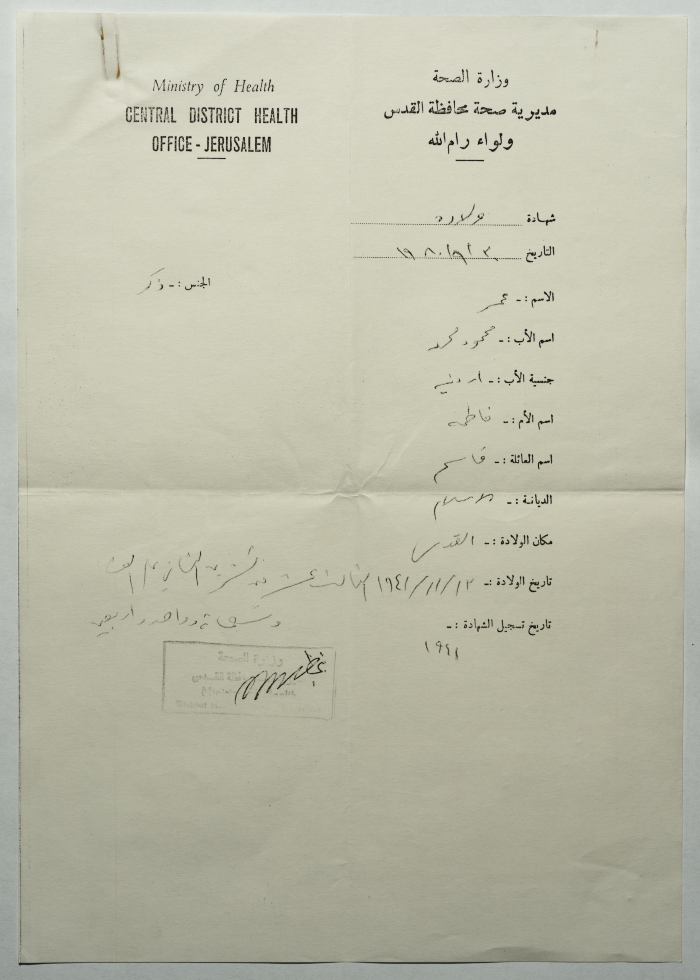 Ministry of Health
CENTRAL DISTRICT HEALTH
OFFICE - JERUSALEM
وزارة الصحة
مديرية صحة محافظة القدس
ولواء رام الله
شهادة ولادة
التاريخ
الجنس :- ذكر
الاسم :- عمر
اسم الأب :- محمود محمد
جنسية الأب :- اردنيه
اسم الأم :- فاطمه
اسم العائلة :- قاسم
الديانة :- الاسلام
مكان الولادة :- القدس
تاريخ الولادة :- ١٩٤١/١١/١٣ الثالث عشر من تشرين الثاني عام الف
وتسعماية وواحد واربعين
تاريخ تسجيل الشهادة :-
١٩٤١
وزارة الصحة